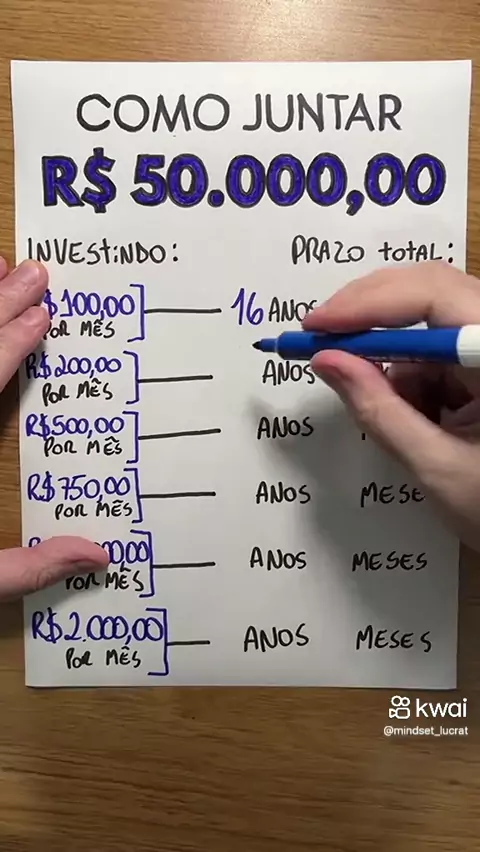 COMO JUNTAR
R$ 50.000,00
INVESTINDO: PRAZO TOTAL:
$100,00 16 ANOS
POR MÊS
R$200,00 ANOS
POR MÊS
R$500,00 ANOS
POR MÊS
R$750,00 ANOS MESE
POR MÊS
00,00 ANOS MESES
POR MÊS
R$2.000,00 ANOS MESES
POR MÊS
kwai
@mindset_lucrat